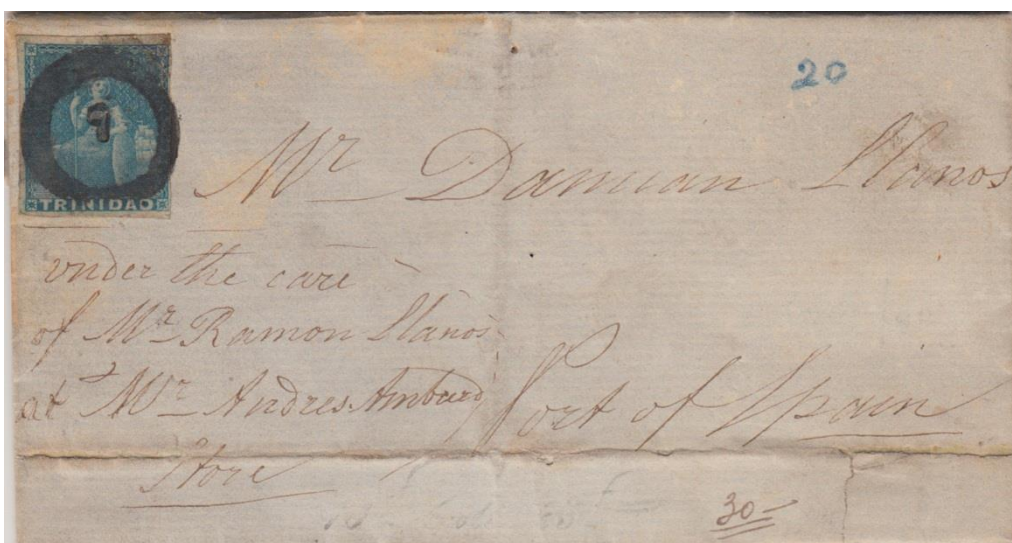 20
9
TRINIDAD
Mr Damian Llanos
under the care
of Mr Ramon Llanos
at Mr Andres Ambard
Store
Port of Spain
30-